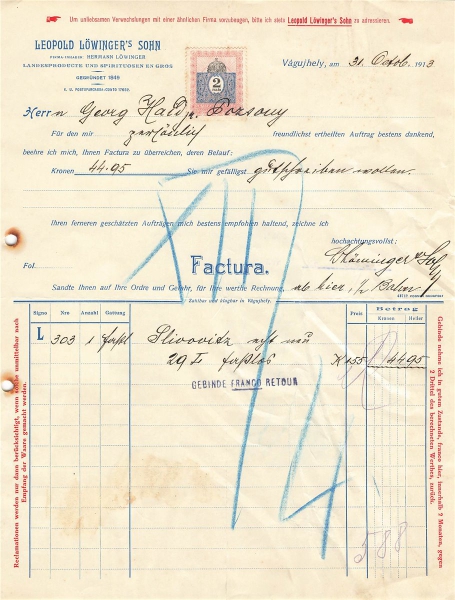 Um unliebsamen Verwechslungen mit einer ähnlichen Firma vorzubeugen, bitte ich stets Leopold Löwinger's Sohn zu adressieren.
LEOPOLD LÖWINGER'S SOHN
FIRMA-INHABER: HERMANN LÖWINGER
LANDESPRODUCTE UND SPIRITUOSEN EN GROS
GEGRÜNDET 1849
K. U. POSTSPARCASSA-CONTO
2
Vágujhely, am 31. Octob. 1913
Herrn Georg Haid, Pozsony
Für den mir persönlich freundlichst ertheilten Auftrag bestens dankend,
beehre ich mich, Ihnen Factura zu überreichen, deren Belauf:
Kronen 44.95 Sie mir gefälligst gutschreiben wollen.
Ihren ferneren geschätzten Aufträgen mich bestens empfohlen haltend, zeichne ich
hochachtungsvoll:
Fol.
Factura.
Sandte Ihnen auf Ihre Ordre und Gefahr, für Ihre werthe Rechnung, ab hier, p. Bahn
Zahlbar und klagbar in Vágujhely.
Signo Nro Anzahl Gattung Preis Betrag
Kronen Heller
L 303 1 Fassl Slivovitz
29 K 155 44 95
GEBINDE FRANCO RETOUR
588
Reclamationen werden nur dann berücksichtigt, wenn solche unmittelbar nach Empfang der Waare gemacht werden.
Gebinde nehme ich in gutem Zustande, franco hier, innerhalb 2 Monaten, gegen 2 Drittel des berechneten Werthes, zurück.